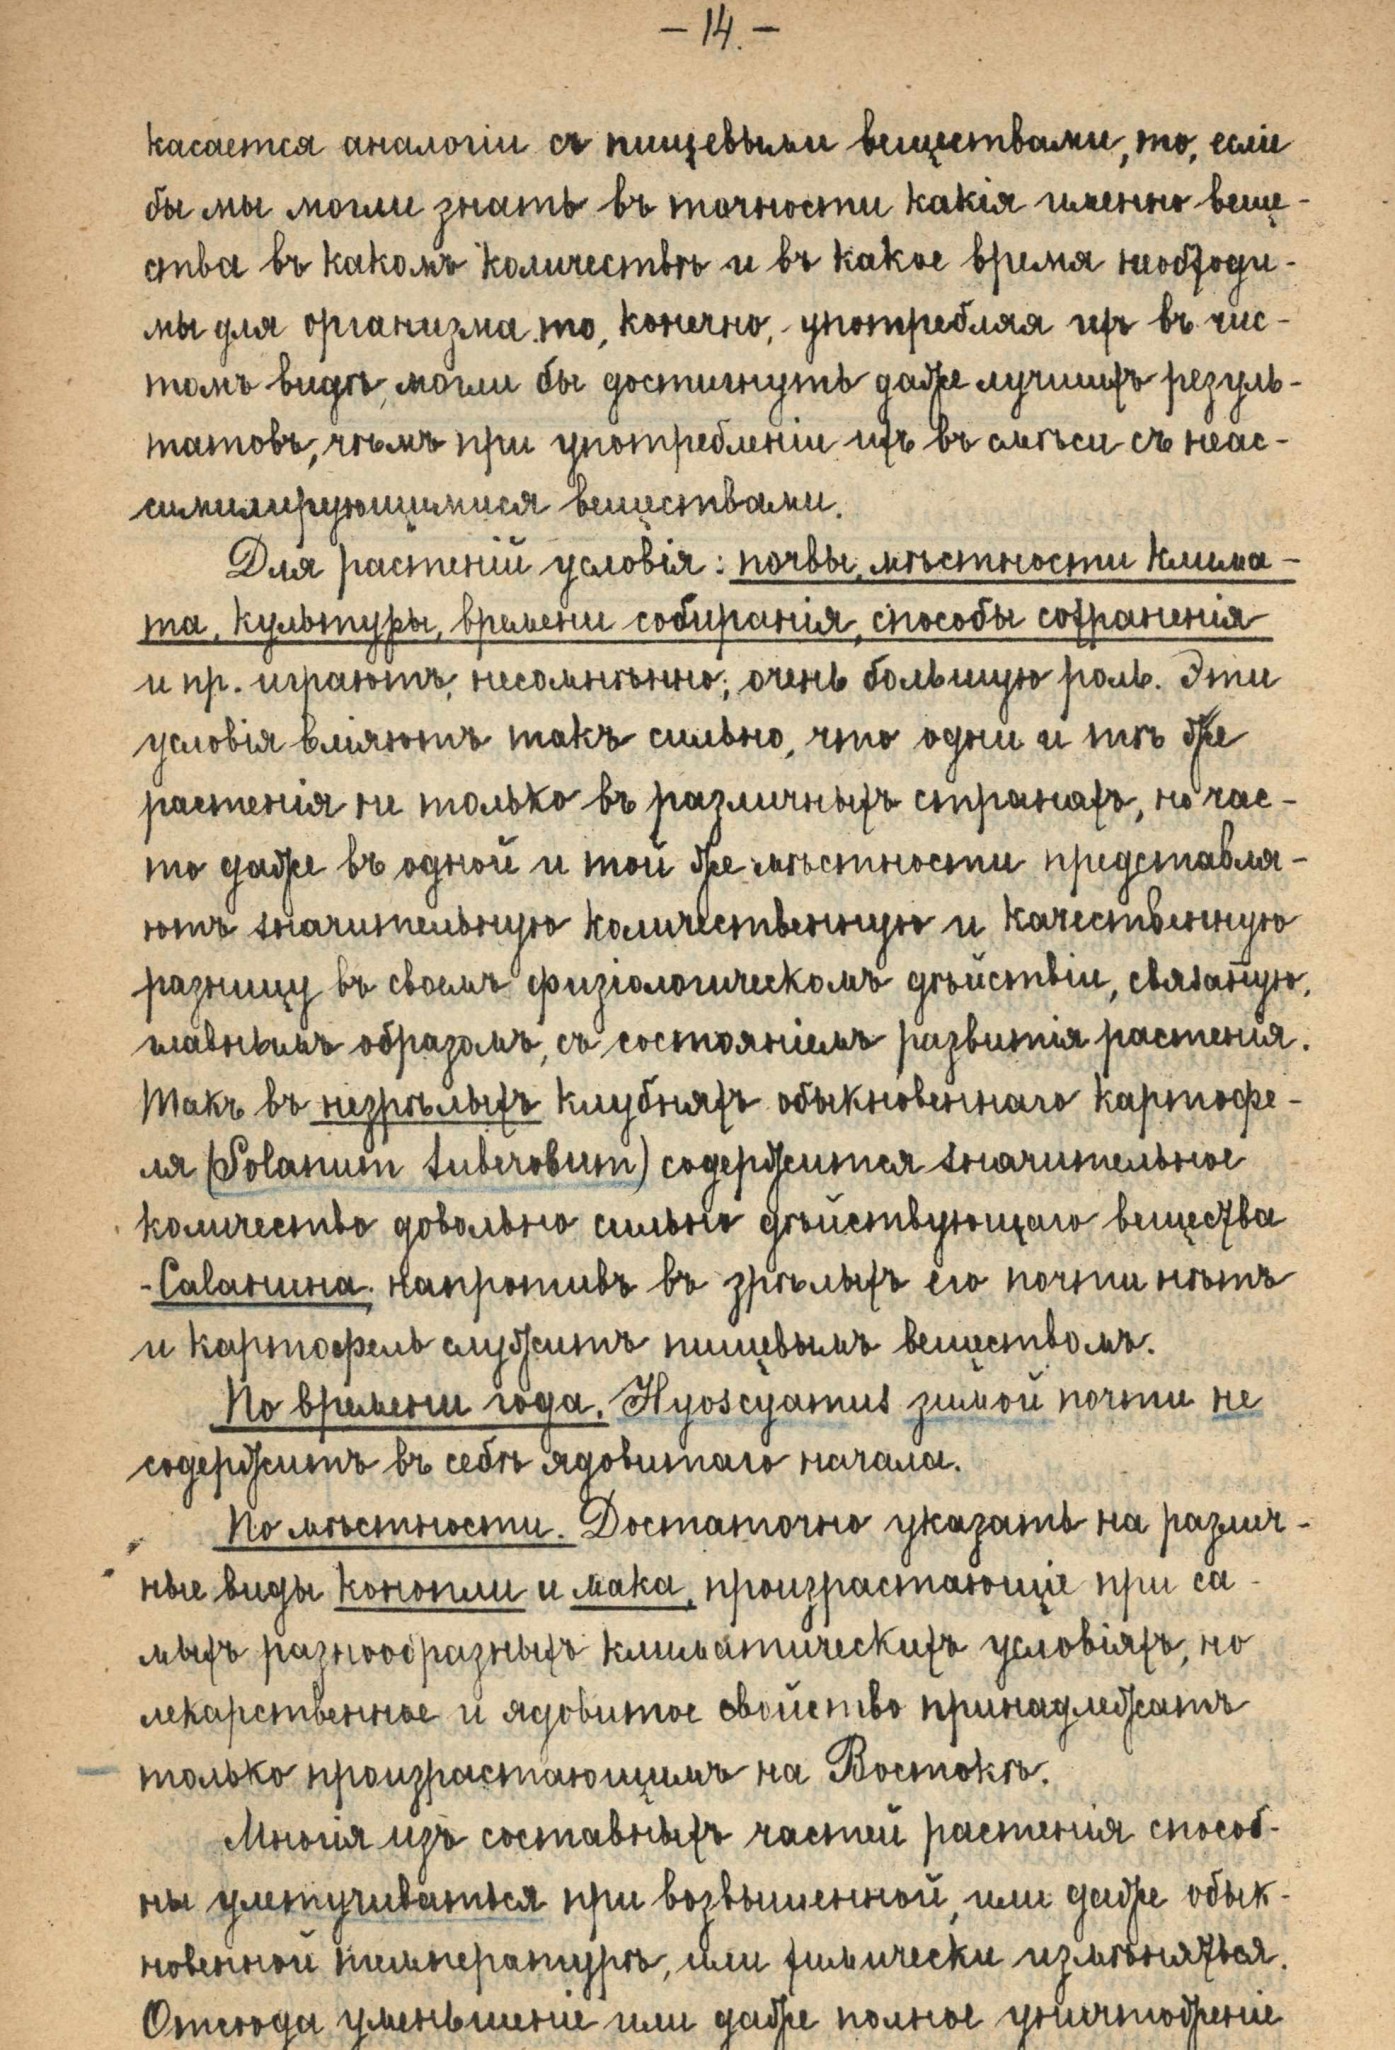 – 14. –
касается аналогіи съ пищевыми веществами, то, если
бы мы могли знать въ точности какія именно веще-
ства въ какомъ количествѣ и въ какое время необходи-
мы для организма то, конечно, употребляя ихъ въ чис-
томъ видѣ, могли бы достигнуть даже лучшихъ резуль-
татовъ, чѣмъ при употребленіи ихъ въ смѣси съ неас-
симилирующимися веществами.
Для растеній условія: почвы, мѣстности клима-
та, культуры, времени собиранія, способы сохраненія
и пр. играютъ, несомнѣнно, очень большую роль. Эти
условія вліяютъ такъ сильно, что одни и тѣ же
растенія не только въ различныхъ странахъ, но час-
то даже въ одной и той же мѣстности представля-
ютъ значительную количественную и качественную
разницу въ своемъ физіологическомъ дѣйствіи, связаную,
главнымъ образомъ, съ состояніемъ развитія растенія.
Такъ въ незрѣлыхъ клубняхъ обыкновеннаго картофе-
ля (Solanum tuberosum) содержится значительное
количество довольно сильно дѣйствующаго вещества
- Саланина, напротивъ въ зрѣлыхъ его почти нѣтъ
и картофель служитъ пищевымъ веществомъ.
По времени года. Hyoscyamus зимой почти не
содержитъ въ себѣ ядовитаго начала.
По мѣстности. Достаточно указать на различ-
ные виды конопли и мака, произрастающіе при са-
мыхъ разнообразныхъ климатическихъ условіяхъ, но
лекарственное и ядовитое свойство принадлежатъ
только произрастающимъ на Востокѣ.
Многія изъ составныхъ частей растенія способ-
ны улетучиваться при возвышенной, или даже обык-
новенной температурѣ, или химически измѣняться.
Отсюда уменьшеніе или даже полное уничтоженіе